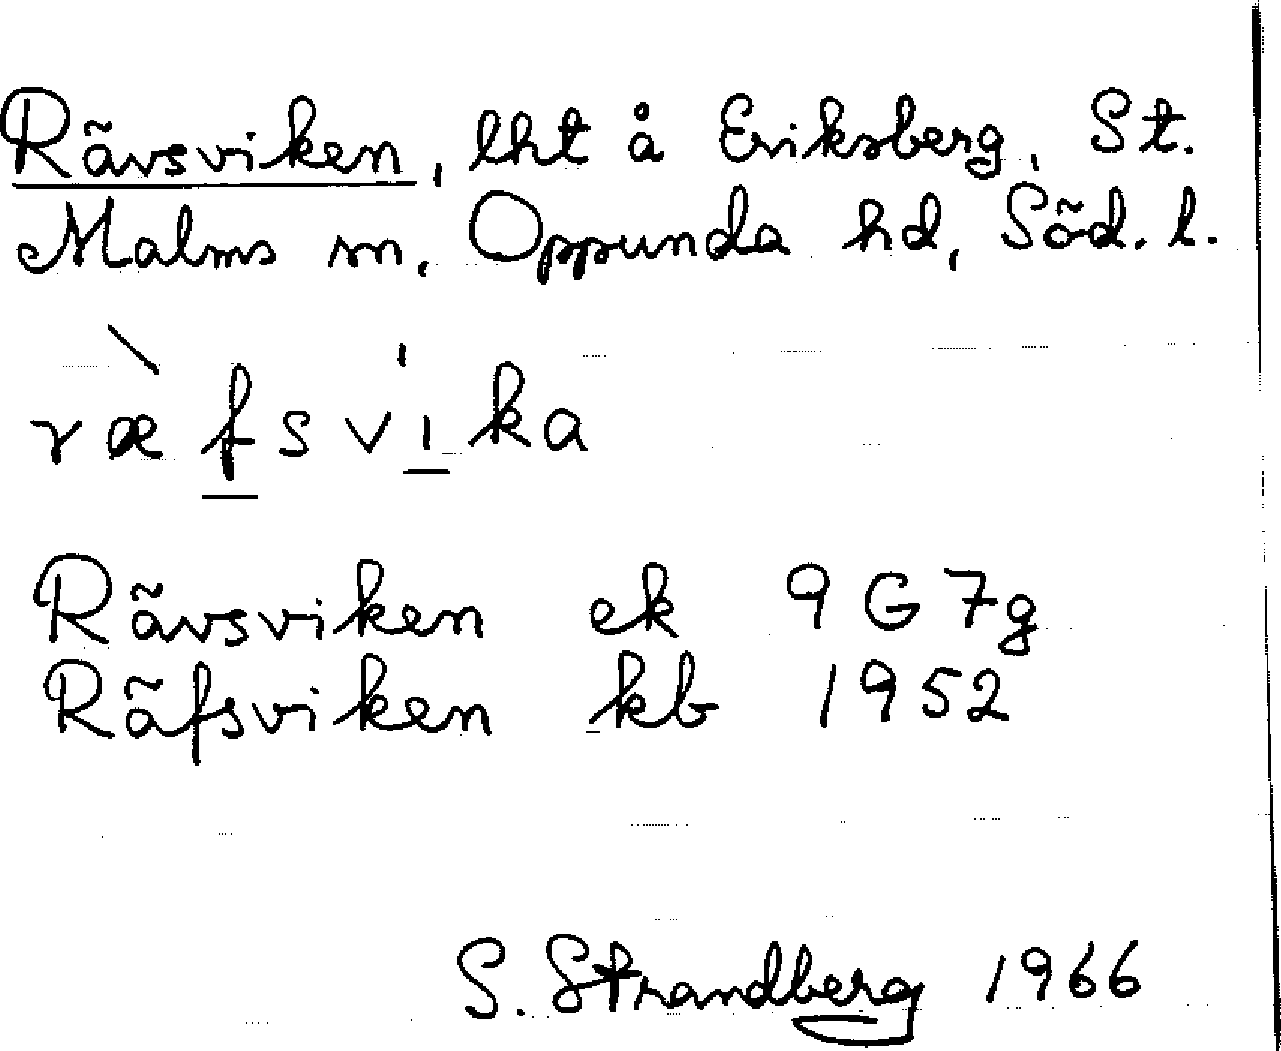 Rävsviken, lht å Eriksberg, St.
Malms sn, Oppunda hd, Söd. l.
ræ̀fsvı̍ka
Rävsviken ek 9G7g
Räfsviken kb 1952
S. Strandberg 1966